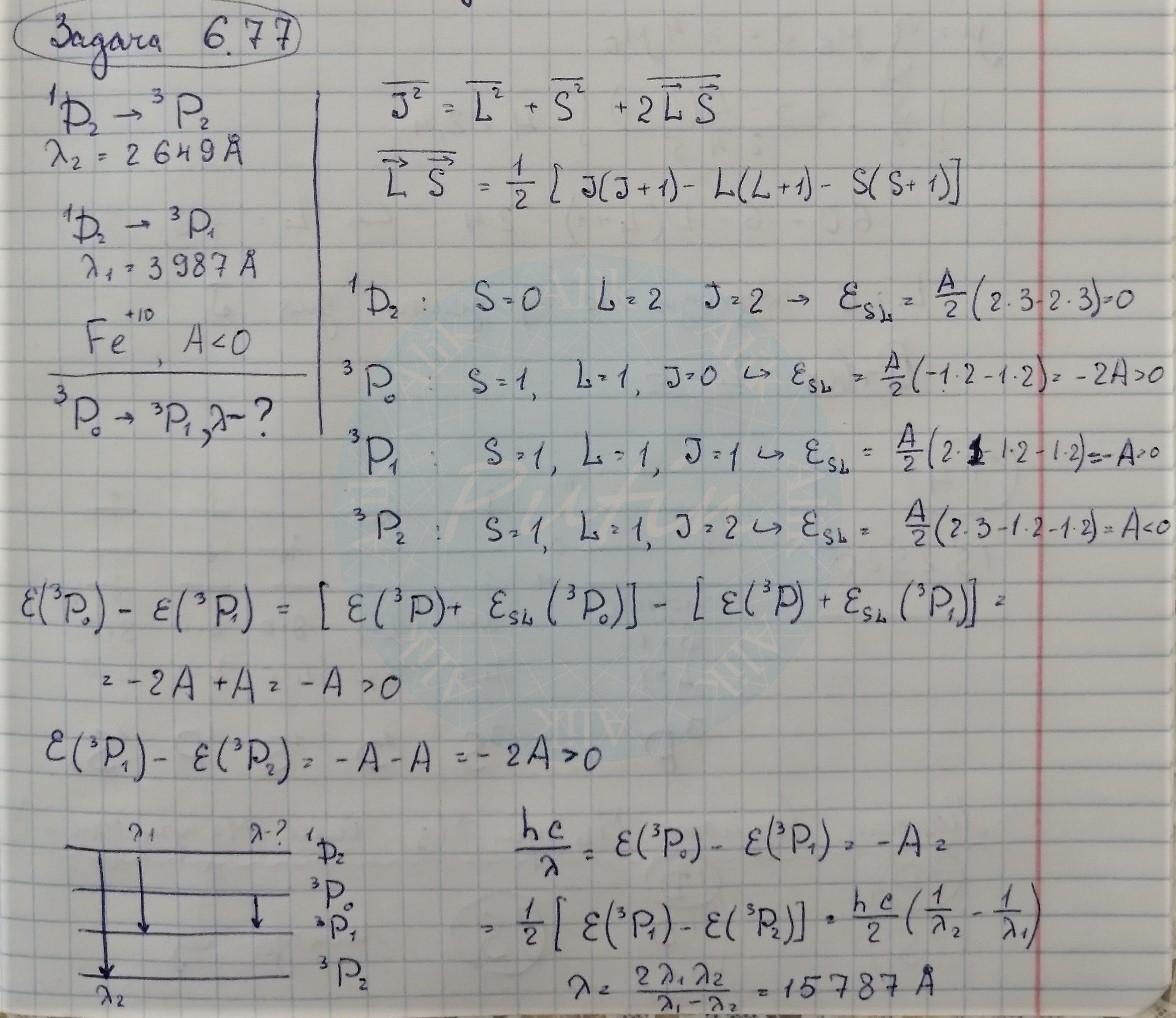 Задача 6.77
¹D₂ → ³P₂
λ₂ = 2649 Å
¹D₂ → ³P₁
λ₁ = 3987 Å
Fe⁺¹⁰, A<0
³P₀ → ³P₁, λ-?
J² = L² + S² + 2 L S
L S = 1/2 [ J(J+1) - L(L+1) - S(S+1)]
¹D₂ : S=0 L=2 J=2 → ε_SL = A/2 (2·3-2·3)=0
³P₀ : S=1, L=1, J=0 ↪ ε_SL = A/2 (-1·2-1·2) = -2A>0
³P₁ : S=1, L=1, J=1 ↪ ε_SL = A/2 (2·1-1·2-1·2)=-A>0
³P₂ : S=1, L=1, J=2 ↪ ε_SL = A/2 (2·3-1·2-1·2) = A<0
ε(³P₀) - ε(³P₁) = [ ε(³P)+ ε_SL (³P₀)] - [ ε(³P) + ε_SL (³P₁)] =
= -2A +A = -A >0
ε(³P₁) - ε(³P₂) = -A-A = -2A>0
λ₁ λ-? ¹D₂
³P₀
³P₁
³P₂
λ₂
hc/λ = ε(³P₀) - ε(³P₁) = -A =
= 1/2 [ ε(³P₁) - ε(³P₂)] = hc/2 (1/λ₂ - 1/λ₁)
λ = 2λ₁λ₂/(λ₁-λ₂) = 15787 Å
Alik
Putin